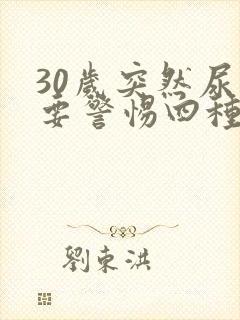 30歲突然尿
要警惕四種
劉東洪